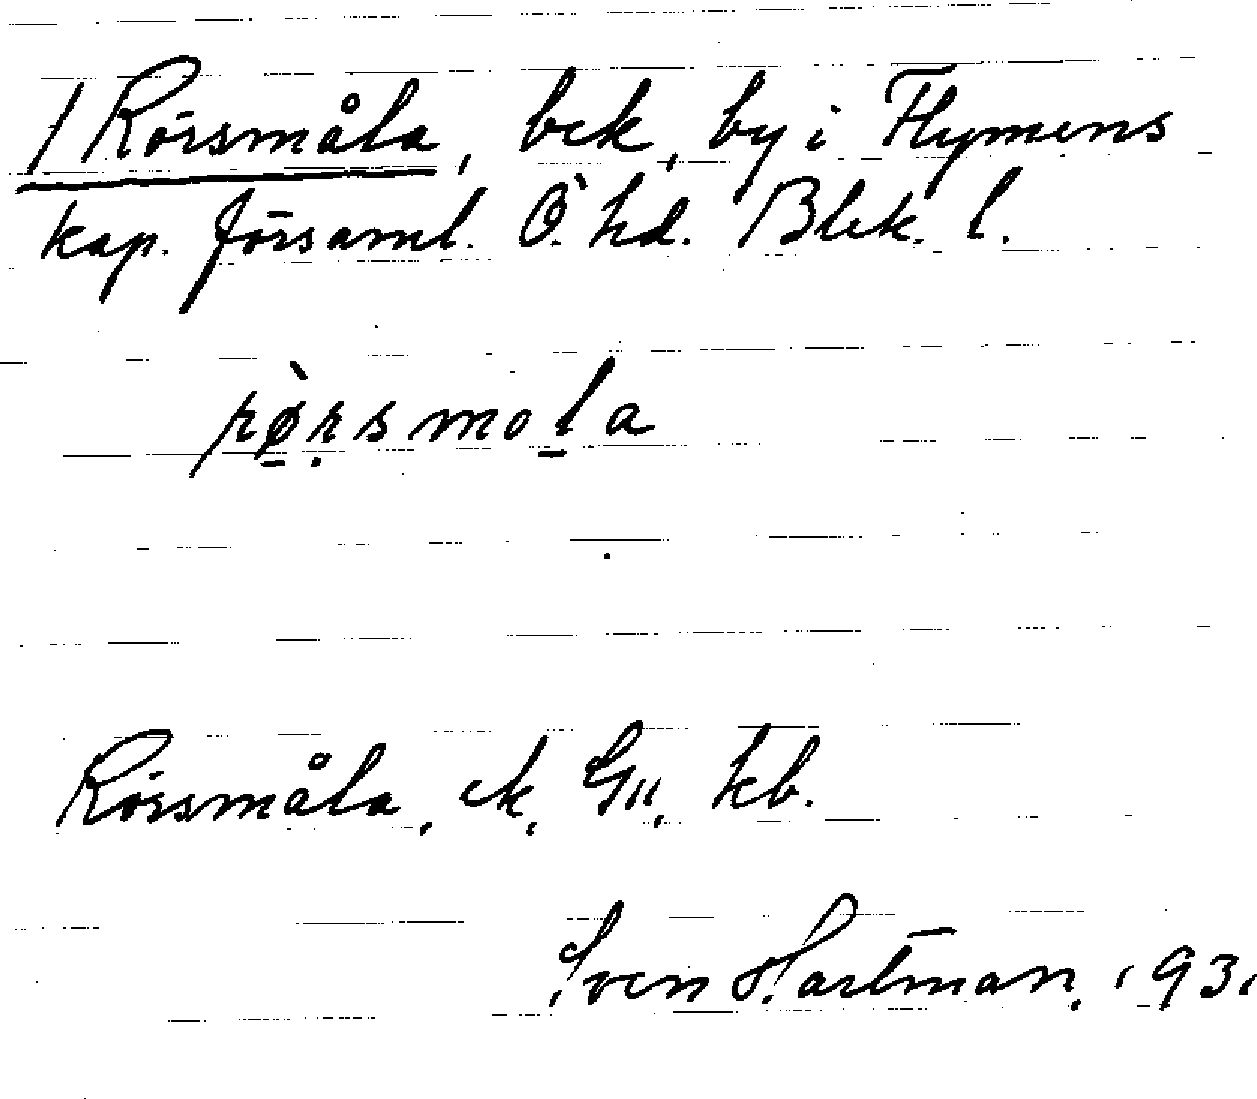 / Rörsmåla, bek, by i Flymens
kap. församl. Ö. hd. Blek. l.
rø̀rsmola
Rörsmåla, ek, G11, kb.
Sven Hartman. 1931